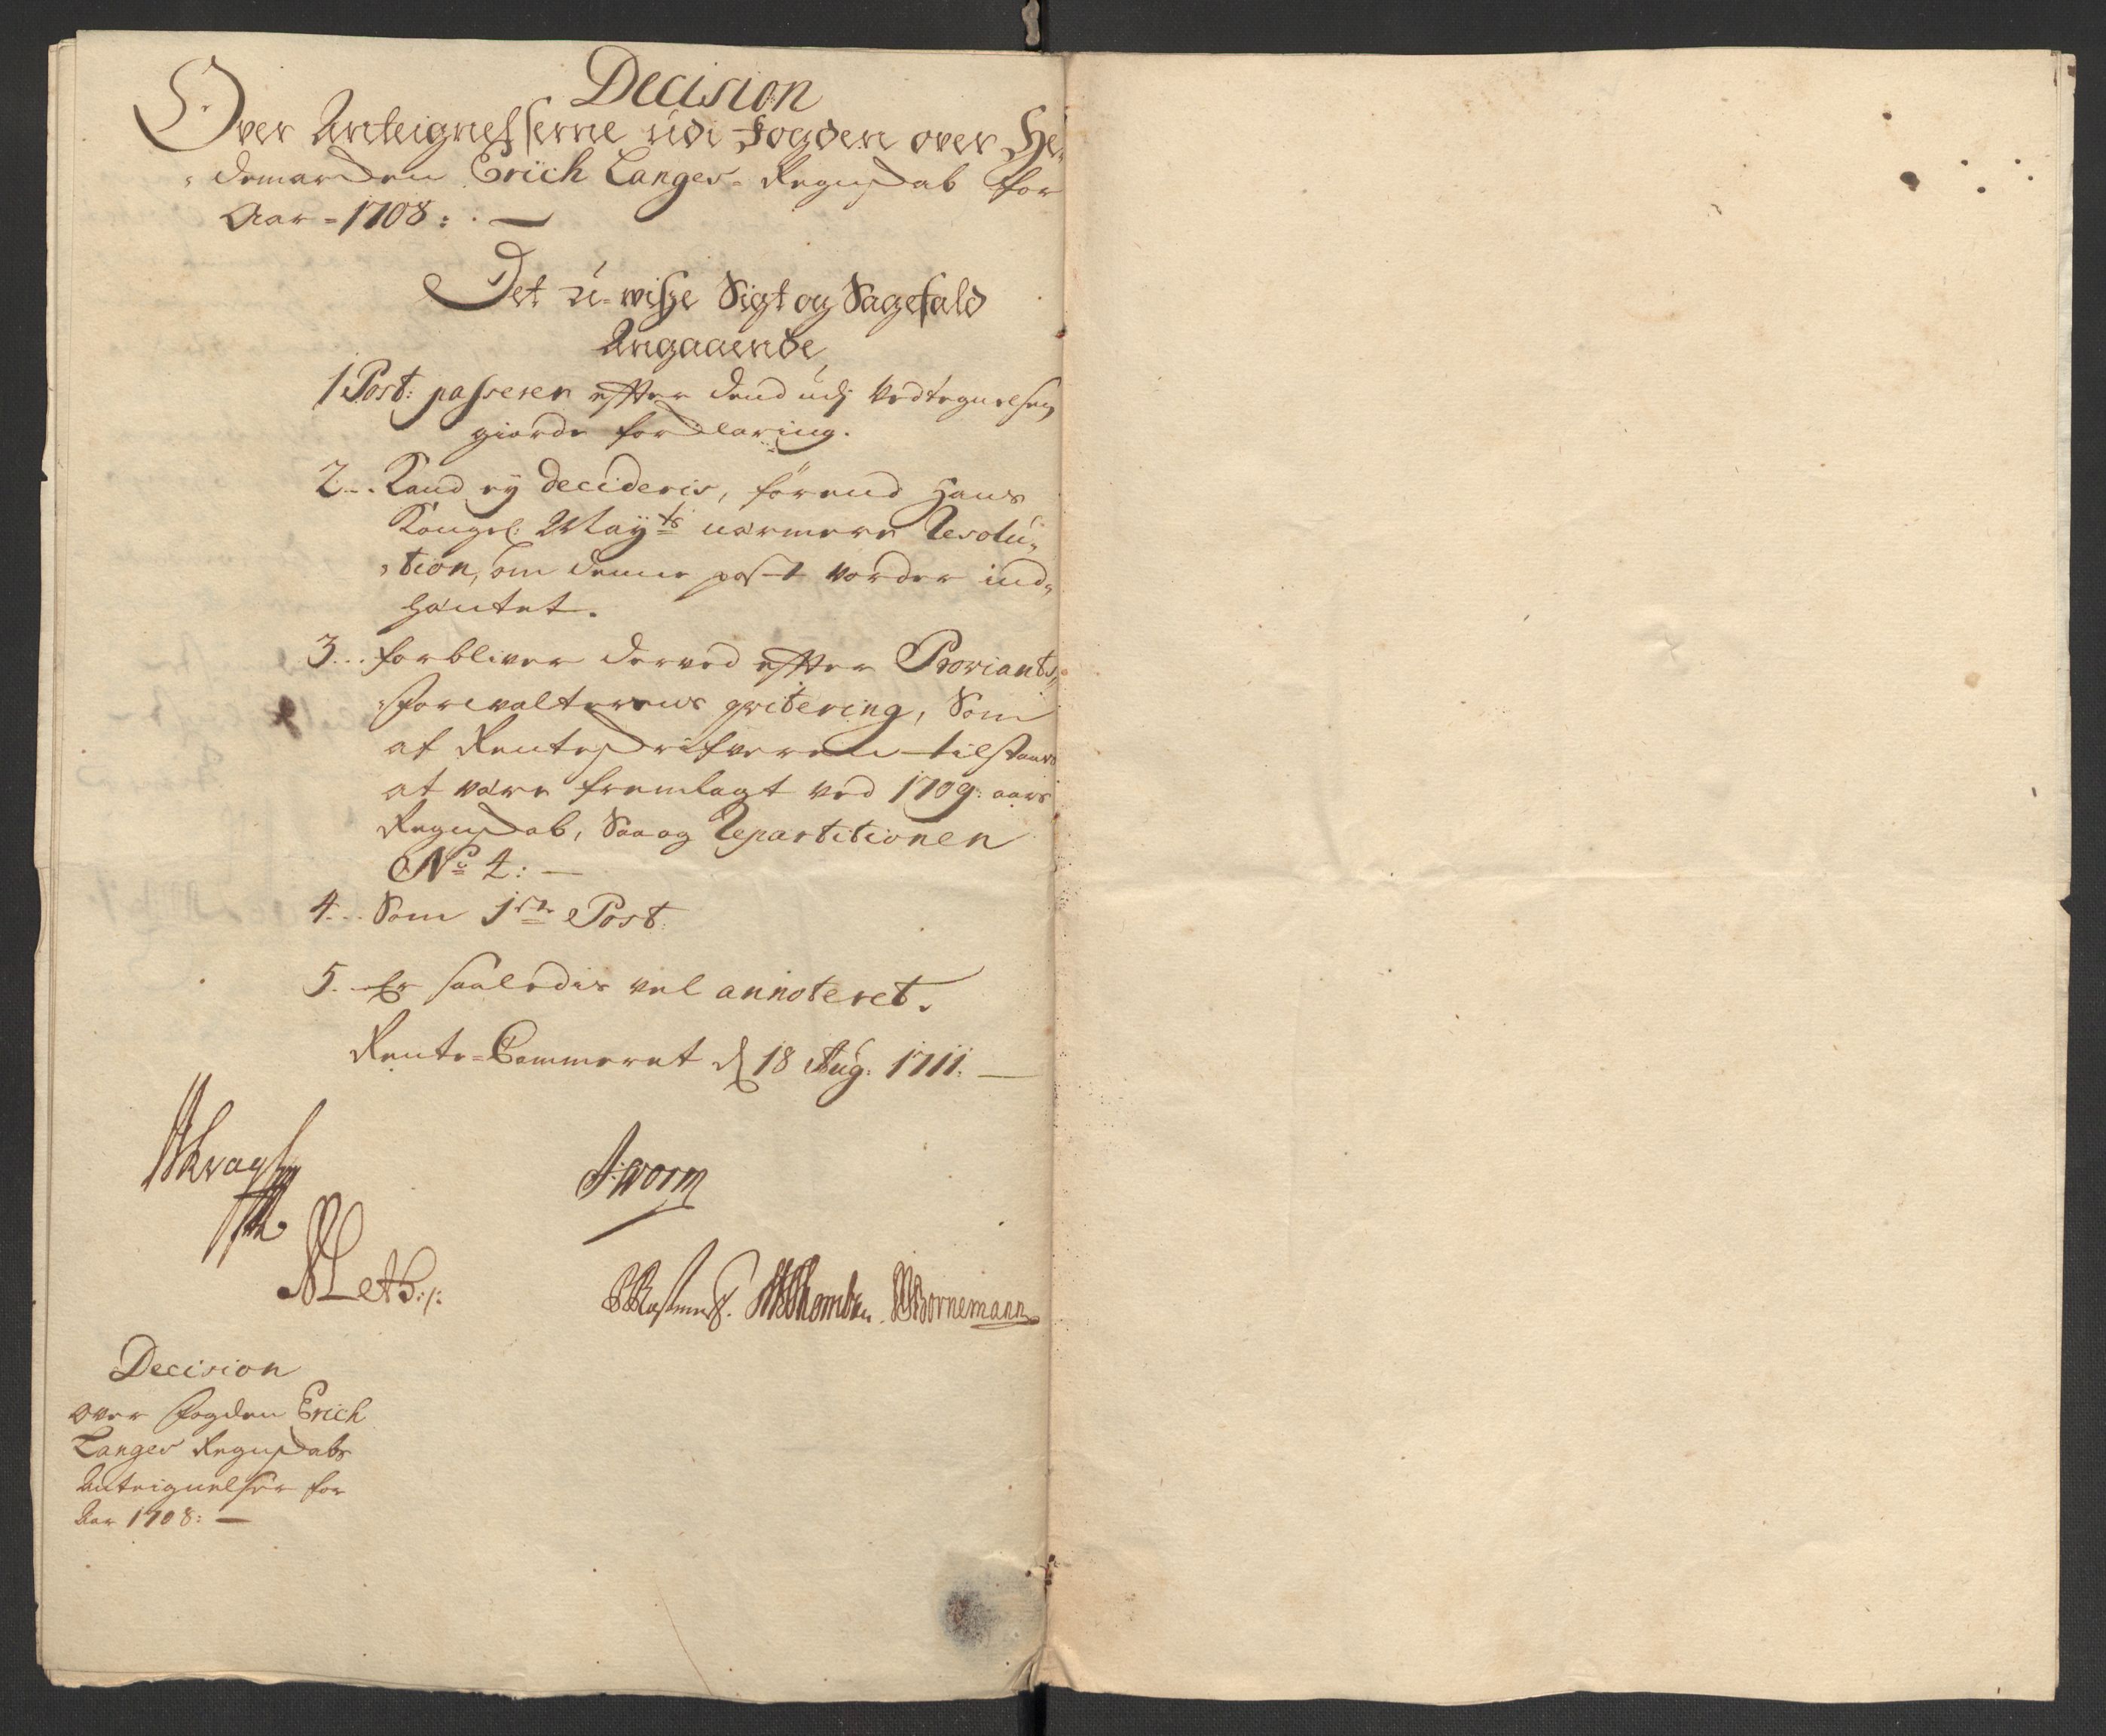 Decision
Over Anteignelserne udi Fogden over He-
demarcken Erich Langes Regnskab for
Aar - 1708: . —
Det u-wisse Sigt og Sagefald
Angaaende
1 Post: passerer efter dend udj Vedtegnelsen
giorde forklaring.
2... Kand ey decideris, førend Hans
Kongel: Mayts nærmere Resolu-
tion, om denne post vorder ind-
hæntet.
3... forbliver derved efter Proviants-
forvalterens qvitering, Som
af Renteskrifveren tilstaaes
at være fremlagt ved 1709: aars
Regnskab, Saa og Repartitionen
No 2: —
4... Som 1ste Post.
5... Er saaledis vel annoteret.
Rente-Cammeret d 18 Aug: 1711. —
Worm
Bornemann
Decision
over fogden Erich
Langes Regnskabs
Anteignelser for
Aar 1708: —